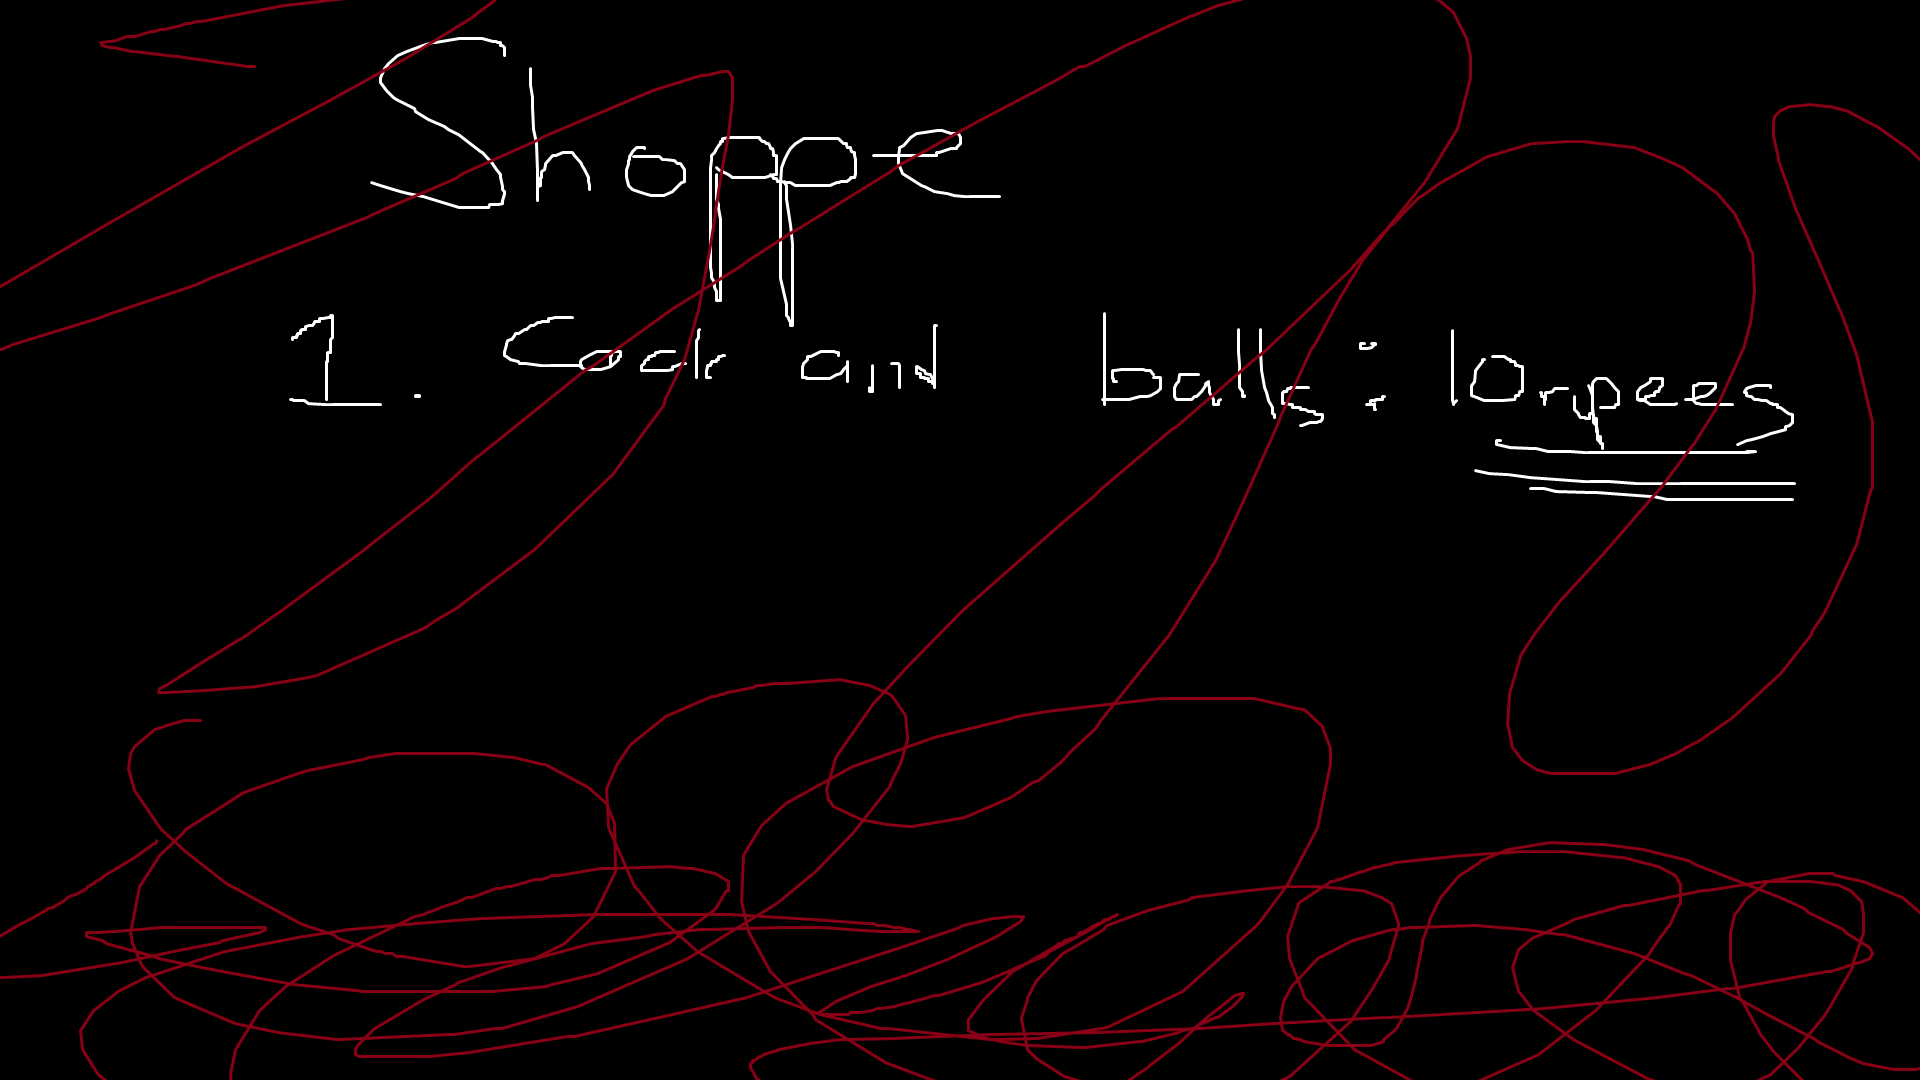 Shoppe
1. Cock and balls: 10 rupees